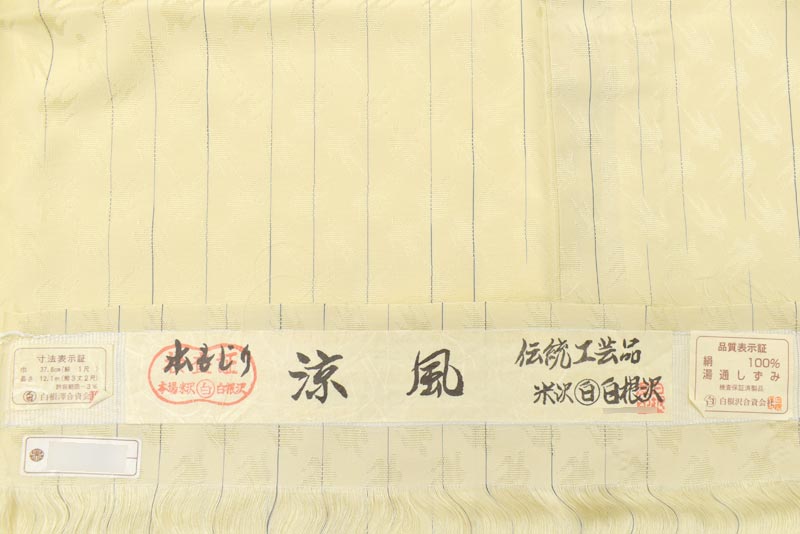 寸法表示証
巾 37.8cm (鯨 1尺)
長さ 12.1m (鯨3丈2尺)
許容範囲-3%
白根澤合資会社
本場米沢 白 白根沢
涼風
伝統工芸品
米沢 白 白根沢
品質表示証
絹 100%
湯通しずみ
検査保証済製品
白根沢合資会社